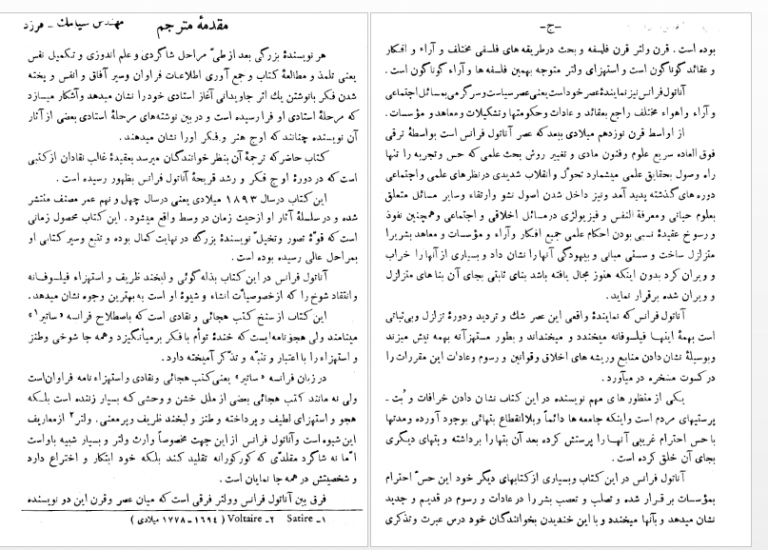 مقدمهٔ مترجم
مهندس سیامك - فرزد
هر نویسندهٔ بزرگی بعد از طیّ مراحل شاگردی و علم اندوزی و تکمیل نفس
یعنی تلمذ و مطالعهٔ کتاب و جمع آوری اطلاعات فراوان وسیر آفاق و انفس و پخته
شدن فکر بانوشتن یك اثر جاویدانی آغاز استادی خودرا نشان میدهد وآشکار میسازد
که مرحلهٔ استادی او فرا رسیده است و در بین نوشته‌های مرحلهٔ استادی بعضی از آثار
آن نویسنده چنانند که اوج هنر و فکر اورا نشان میدهند.
کتاب حاضر که ترجمهٔ آن بنظر خوانندگان میرسد بعقیدهٔ غالب نقادان از کتبی
است که در دورهٔ اوج فکر و رشد قریحهٔ آناتول فرانس بظهور رسیده است .
این کتاب درسال ۱۸۹۳ میلادی یعنی درسال چهل و نهم عمر مصنف منتشر
شده و در سلسلهٔ آثار او ازحیث زمان در وسط واقع میشود. این کتاب محصول زمانی
است که قوّهٔ تصور وتخیّل نویسندهٔ بزرگ در نهایت کمال بوده و تتبع وسیر کتابی او
بمراحل عالی رسیده بوده است .
آناتول فرانس در این کتاب بذله گوئی و لبخند ظریف و استهزاء فیلسوفانه
وانتقاد شوخ را که ازخصوصیّات انشاء و شیوهٔ او است به بهترین وجوه نشان میدهد.
این کتاب از سنخ کتب هجائی و نقادی است که باصطلاح فرانسه «ساتیر۱»
مینامند ولی هجونامه‌ایست که خندهٔ توأم با فکر برمیانگیزد وهمه جا شوخی وطنز
و استهزاء را با اعتبار و تنبّه و تذکر آمیخته دارد.
در زبان فرانسه «ساتیر» یعنی کتب هجائی ونقادی واستهزاء نامه فراوان است
ولی نه مانند کتب هجائی بعضی از ملل خشن و وحشی که بسیار زننده است بلکه
هجو و استهزای لطیف و پرداخته و طنز و لبخند ظریف وپرمعنی. ولتر۲ ازمعاریف
این شیوه است وآناتول فرانس از این جهت مخصوصاً وارث ولتر و بسیار شبیه باواست
امّا نه شاگرد مقلّدی که کورکورانه تقلید کند بلکه خود ابتکار و اختراع دارد
و شخصیتش در همه جا نمایان است .
فرق بین آناتول فرانس وولتر فرقی است که میان عصر وقرن این دو نویسنده
۱- Satire ۲- Voltaire (۱۶۹۴-۱۷۷۸ میلادی )
-ج-
بوده است . قرن ولتر قرن فلسفه و بحث درطریقه های فلسفی مختلف و آراء و افکار
و عقائد گوناگون است و استهزای ولتر متوجه بهمین فلسفه‌ها و آراء گوناگون است .
آناتول فرانس نیز نمایندهٔ عصر خوداست یعنی عصر سیاست وسرگرمی بمسائل اجتماعی
و آراء واهواء مختلف راجع بعقائد و عادات وحکومتها وتشکیلات ومعاهد و مؤسسات .
از اواسط قرن نوزدهم میلادی ببعد که عصر آناتول فرانس است بواسطهٔ ترقی
فوق العاده سریع علوم وفنون مادی و تغییر روش بحث علمی که حس وتجربه را تنها
راه وصول بحقایق علمی میشمارد تحوّل و انقلاب شدیدی در نظرهای علمی و اجتماعی
دوره های گذشته پدید آمد ونیز داخل شدن اصول نشو وارتقاء وسایر مسائل متعلق
بعلوم حیاتی ومعرفة النفس و فیزیولژی در مسائل اخلاقی و اجتماعی وهمچنین نفوذ
و رسوخ عقیدهٔ نسبی بودن احکام علمی جمیع افکار وآراء و مؤسسات و معاهد بشر را
متزلزل ساخت و سستی مبانی و بیهودگی آنها را نشان داد و بسیاری از آنها را خراب
و ویران کرد بدون اینکه هنوز مجال یافته باشد بنای ثابتی بجای آن بنا های متزلزل
و ویران شده برقرار نماید .
آناتول فرانس که نمایندهٔ واقعی این عصر شك و تردید ودورهٔ تزلزل وبی‌ثباتی
است بهمهٔ اینها فیلسوفانه میخندد و میخنداند و بطور مستهزآنه بهمه نیش میزند
وبوسیلهٔ نشان دادن منابع وریشه های اخلاق وقوانین و رسوم وعادات این مقررات را
در کسوت مسخره در میآورد .
یکی از منظور های مهم نویسنده در این کتاب نشان دادن خرافات و بُت -
پرستیهای مردم است و اینکه جامعه ها دائماً و بلاانقطاع بتهائی بوجود آورده ومدتها
با حس احترام غریبی آنها را پرستش کرده بعد آن بتها را برداشته و بتهای دیگری
بجای آن خلق کرده است .
آناتول فرانس در این کتاب وبسیاری از کتابهای دیگر خود این حسّ احترام
بمؤسسات برقرار شده و تصلب و تعصب بشر را در عادات و رسوم در قدیم و جدید
نشان میدهد و بآنها میخندد و با این خندیدن بخوانندگان خود درس عبرت وتذکری